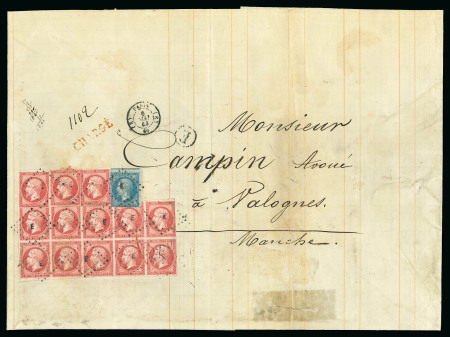 1102
CHARGÉ
PARIS
E
Monsieur
Campin Avoué
à Valognes.
Manche.